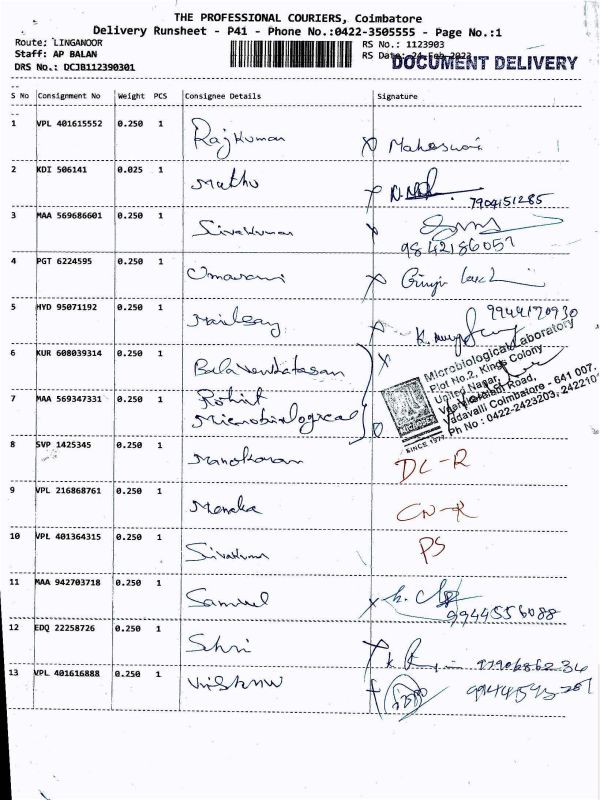 THE PROFESSIONAL COURIERS, Coimbatore
Delivery Runsheet - P41 - Phone No.:0422-3505555 - Page No.:1
Route: LINGANOOR
RS No.: 1123903
Staff: AP BALAN
RS Date: 24 Feb 2023
DOCUMENT DELIVERY
DRS No.: DCJB112390301
S No Consignment No Weight PCS Consignee Details Signature
1 VPL 401615552 0.250 1 Rajkumar x Maheswari
2 KDI 506141 0.025 1 Muthu 7904151285
3 MAA 569686601 0.250 1 Sivakumar x 9842186057
4 PGT 6224595 0.250 1 Umarani x
5 HYD 95071192 0.250 1 9944170930
6 KUR 608039314 0.250 1 Balavenkatasan x
7 MAA 569347331 0.250 1 Rohit
Microbiological
Microbiological Laboratory
Plot No.2, Kings Colony
United Nagar,
Road,
Vadavalli Coimbatore - 641 007.
Ph No : 0422-2423203, 2422101
SINCE 1977
8 SVP 1425345 0.250 1 Manokaran DL-R
9 VPL 216868761 0.250 1 Menaka CN-R
10 VPL 401364315 0.250 1 Sivakumar PS
11 MAA 942703718 0.250 1 Samuel x 9944556088
12 EDQ 22258726 0.250 1 Shri
13 VPL 401616888 0.250 1 Vishnu